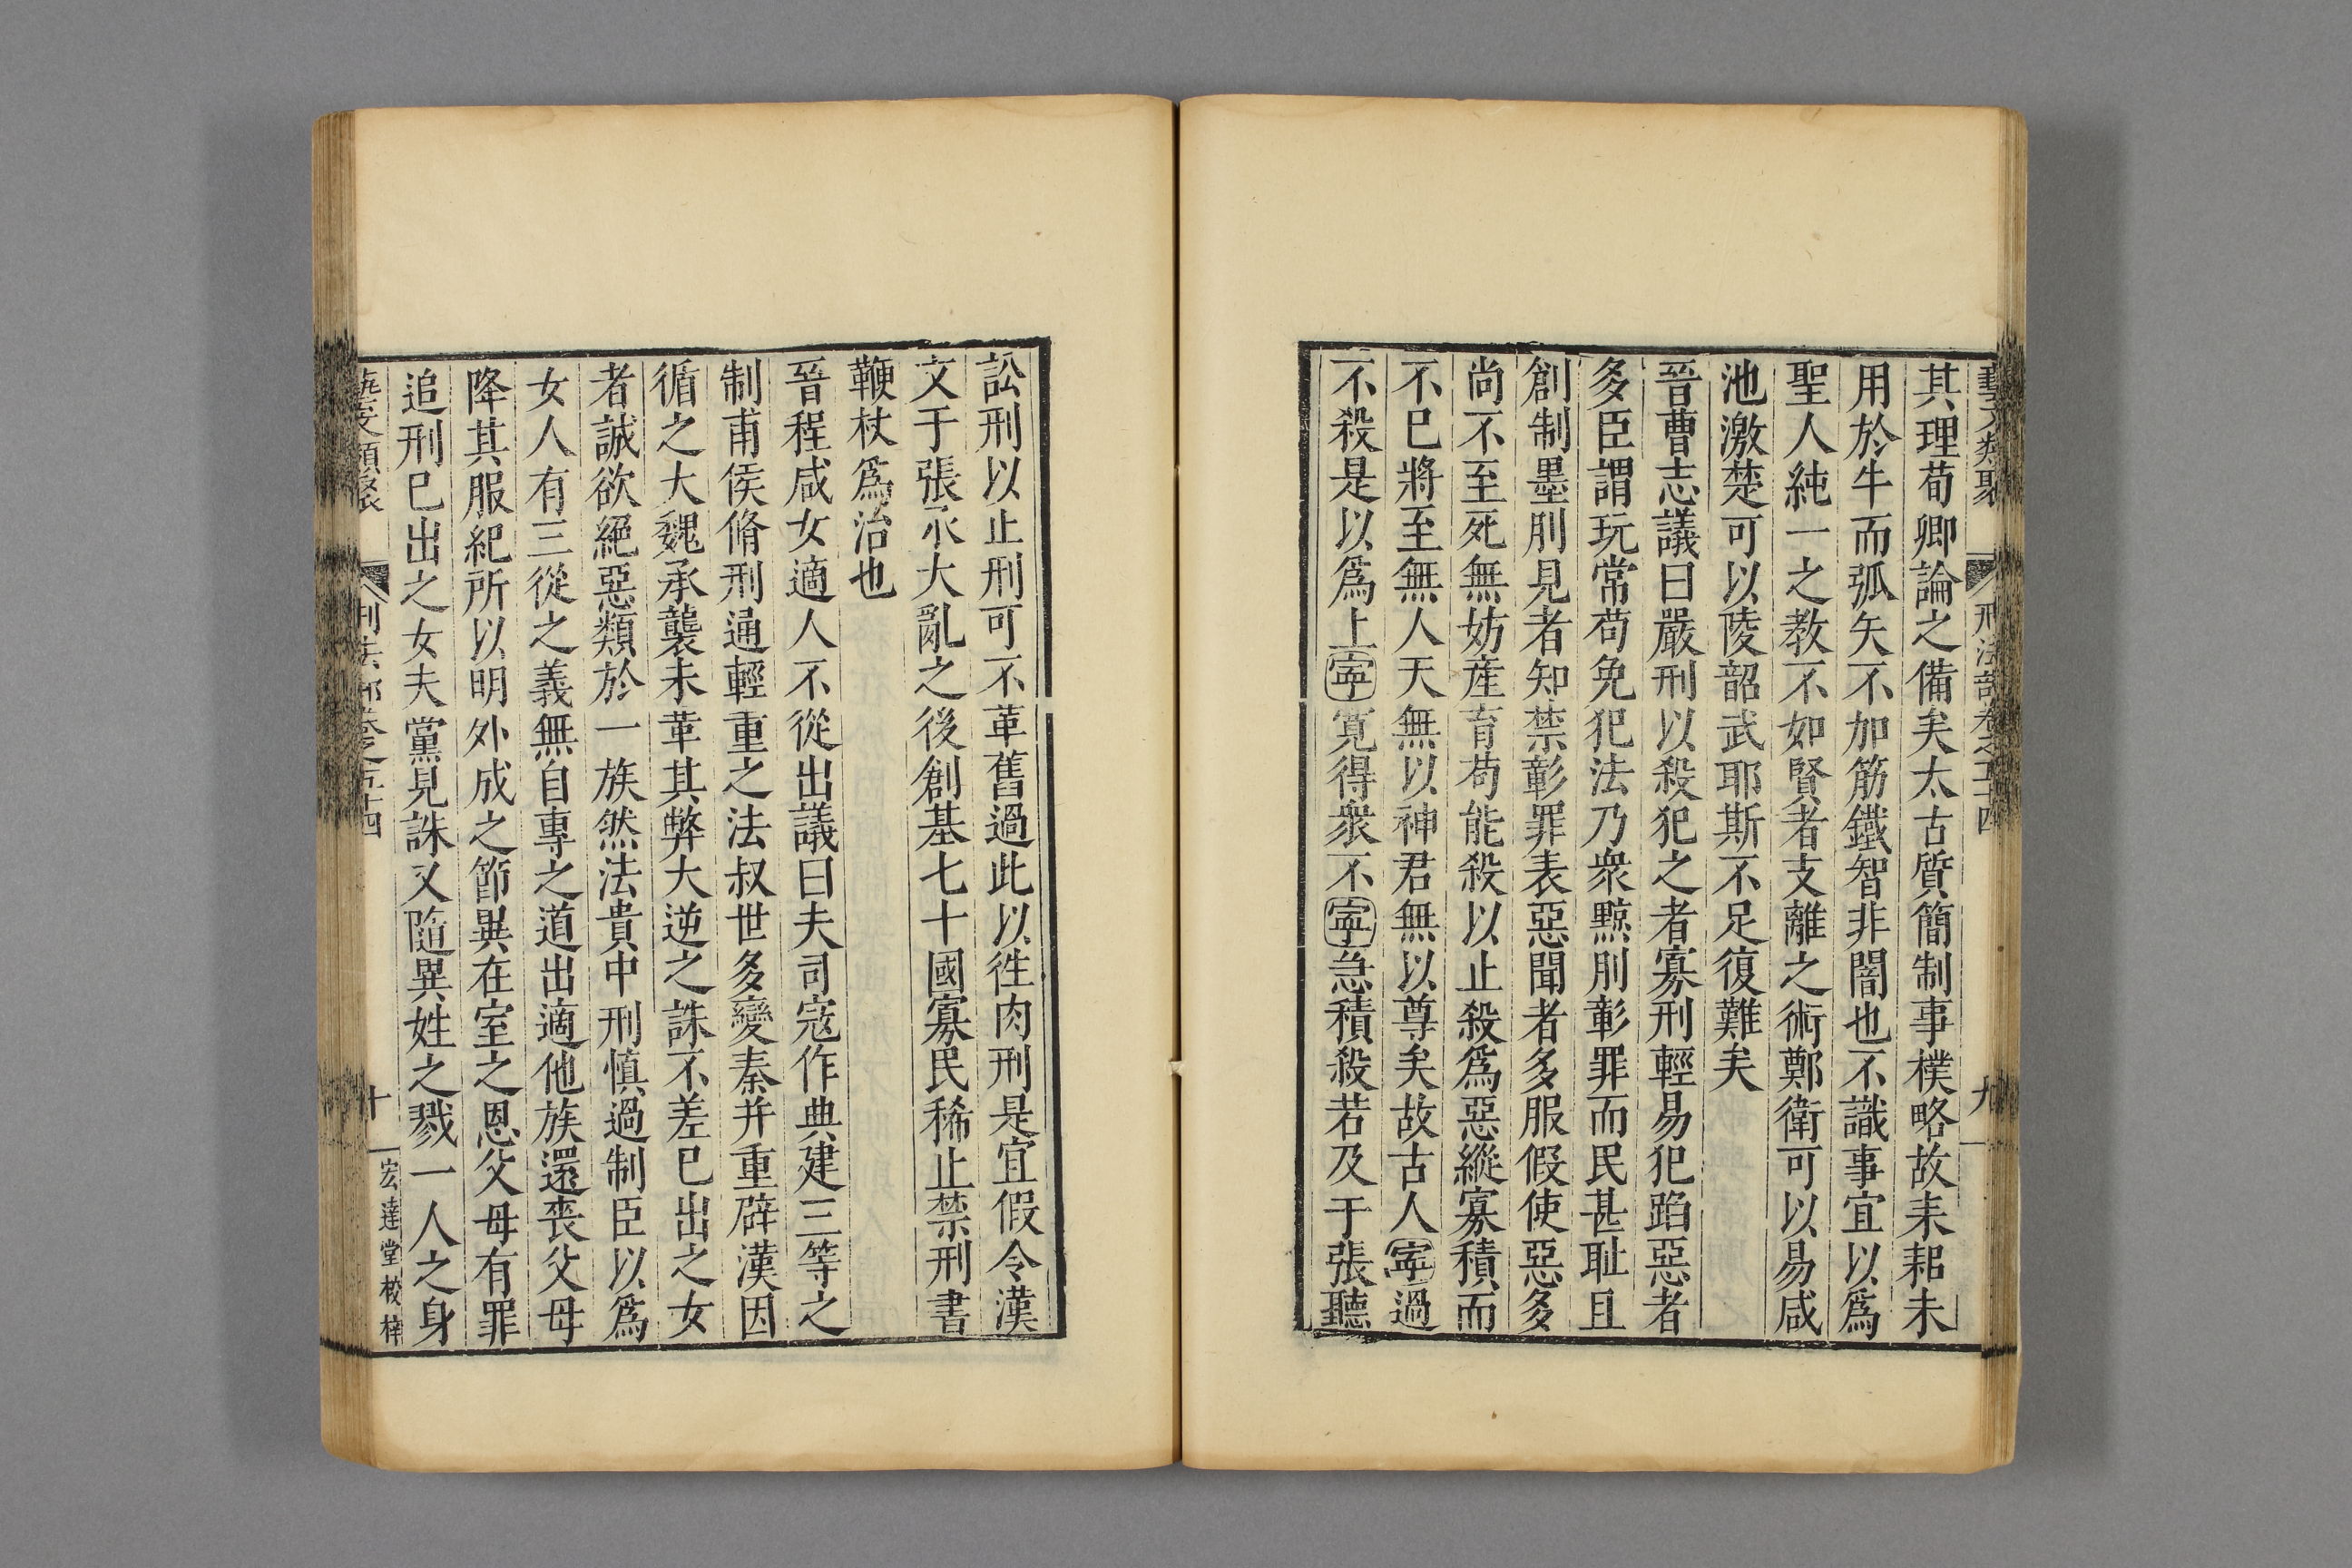 藝文類聚 刑法部卷之五十四 九
其理荀卿論之備矣太古質簡制事樸略故耒耜未
用於牛而弧矢不加筋鐵智非闇也不識事宜以爲
聖人純一之教不如賢者支離之術鄭衛可以易咸
池激楚可以陵韶武耶斯不足復難矣
晉曹志議曰嚴刑以殺犯之者寡刑輕易犯蹈惡者
多臣謂玩常苟免犯法乃衆黥刖彰罪而民甚耻且
創制墨刖見者知禁彰罪表惡聞者多服假使惡多
尚不至死無妨産育苟能殺以止殺爲惡縱寡積而
不已將至無人天無以神君無以尊矣故古人寜過
不殺是以爲上寜寬得衆不寜急積殺若及于張聽
訟刑以止刑可不革舊過此以徃肉刑是宜假令漢
文于張氶大亂之後創基七十國寡民稀止禁刑書
鞭杖爲治也
晉程咸女適人不從出議曰夫司寇作典建三等之
制甫侯脩刑通輕重之法叔世多變秦并重辟漢因
循之大魏承襲未革其弊大逆之誅不差已出之女
者誠欲絕惡類於一族然法貴中刑慎過制臣以爲
女人有三從之義無自專之道出適他族還喪父母
降其服紀所以明外成之節異在室之恩父母有罪
追刑已出之女夫黨見誅又隨異姓之戮一人之身
藝文類聚 刑法部卷之五十四 十 宏達堂校梓